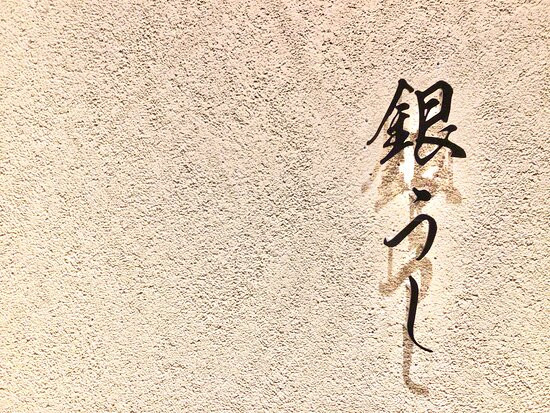 銀うし